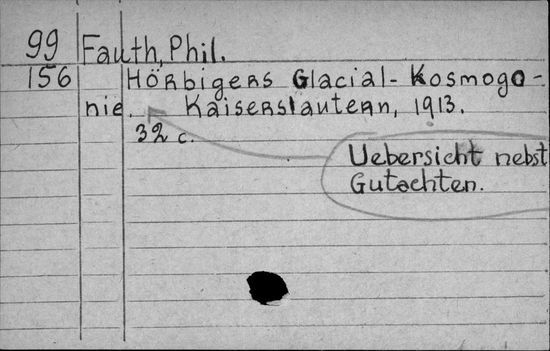 99 Fauth, Phil.
156 Hörbigers Glacial-Kosmogo-
nie. Kaiserslautern, 1913.
32 c.
Uebersicht nebst
Gutachten.